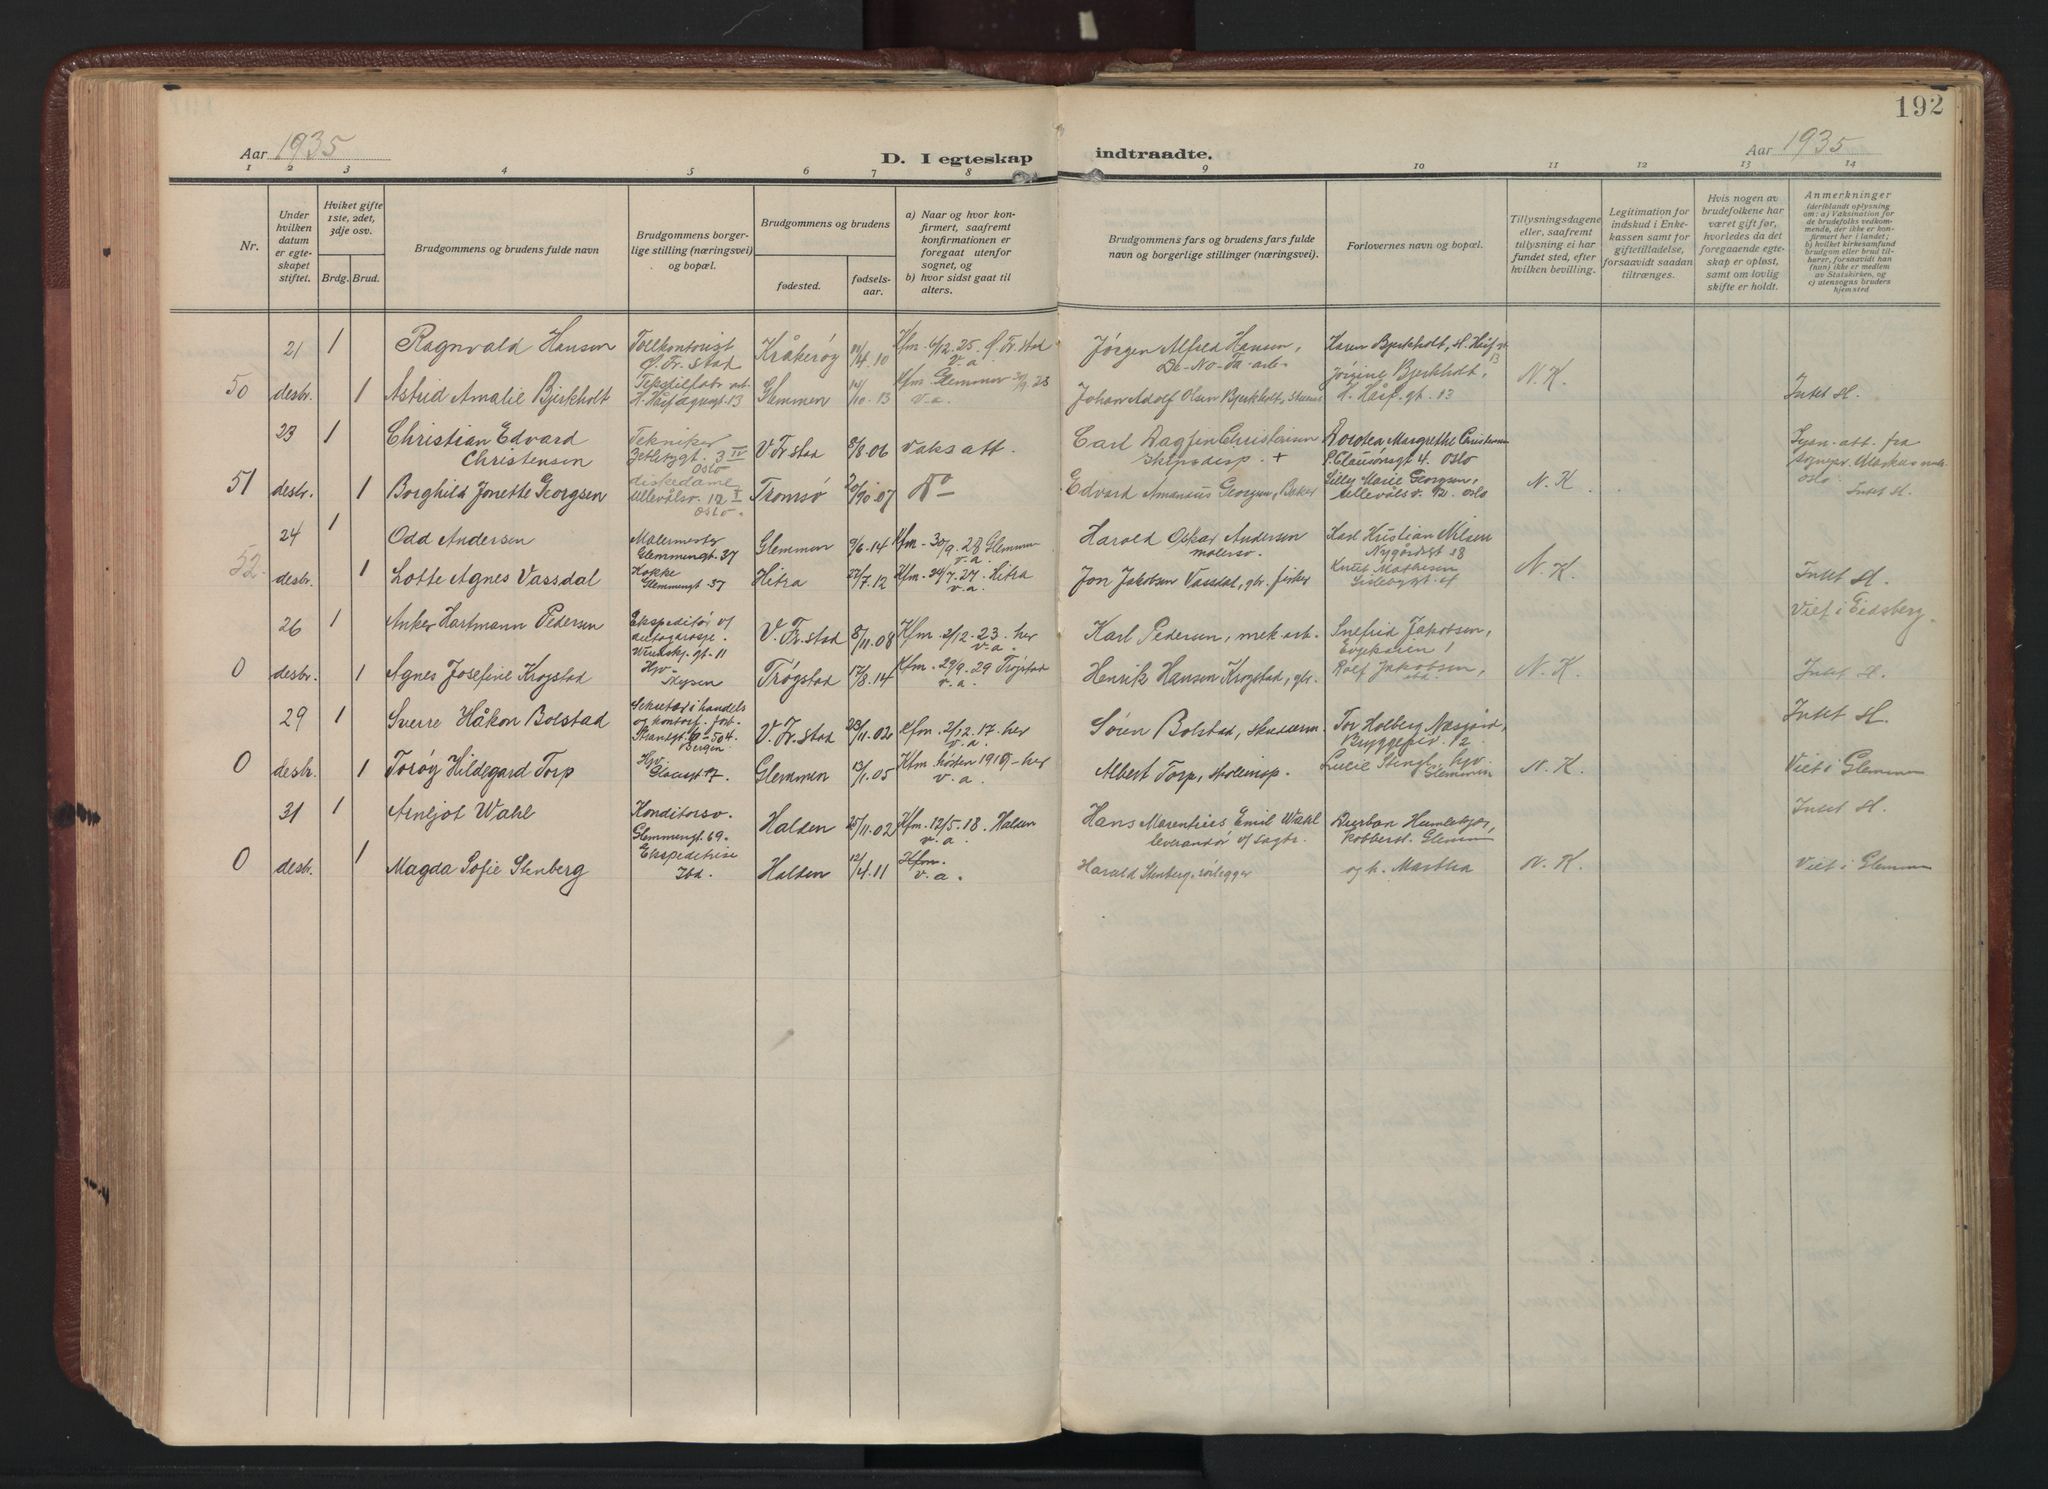 192
Aar 1935
D. I egteskap indtraadte.
Aar 1935
1 2 3 4 5 6 7 8 9 10 11 12 13 14
Nr.
Under hvilken datum er egteskapet stiftet.
Hviket gifte 1ste, 2det, 3dje osv.
Brdg. Brud.
Brudgommens og brudens fulde navn
Brudgommens borgerlige stilling (næringsvei) og bopæl.
Brudgommens og brudens
fødested.
fødselsaar.
a) Naar og hvor konfirmert, saafremt konfirmationen er foregaat utenfor sognet, og
b) hvor sidst gaat til alters.
Brudgommens fars og brudens fars fulde navn og borgerlige stillinger (næringsvei).
Forlovernes navn og bopæl.
Tillysningsdagene eller, saafremt tillysning ei har fundet sted, efter hvilken bevilling.
Legitimation for indskud i Enkekassen samt for giftetilladelse, forsaavidt saadan tiltrænges.
Hvis nogen av brudefolkene har været gift før, hvorledes da det foregaaende egteskap er opløst, samt om lovlig skifte er holdt.
Anmerkninger (deriblandt oplysning om: a) Vaksination for de brudefolks vedkommende, der ikke er konfirmert her i landet; b) hvilket kirkesamfund brudgom eller brud tilhører, forsaavidt han (hun) ikke er medlem av Statskirken, og c) utensogns bruders hjemsted
21 1 Ragnvald Hansen Tollkontorist Ø. Fr.stad Kråkerøy 4.10 Kfm. 6/12.25. Ø. Fr.stad v.a Jørgen Alfred Hansen, De-No-Fa-arb. Karen Bjerkholt, H. Håsf. 13
50 desbr. 1 Astrid Amalie Bjerkholt Tekstilfabr. arb. H. Håsfagugt. 13 Glemmen 10.13 Kfm. Glemmen 9.28 v.a. Johan Adolf Olsen Bjerkholt, Jørgine Bjerkholt, H. Håsf. gt. 13 N. K. Intet H.
23 1 Christian Edvard Christensen Tekniker 3 IV Oslo V. Fr.stad 8/8.06 vaks att. Carl Dagfin Christensen skipsdisp. + Dorotea Margrethe Christensen P. Clausønsgt 4. Oslo Lysn. att. fra sognepr. Markus Oslo
51 desbr. 1 Borghild Jonette Georgsen diskedame Ullevålsv. 12 I Oslo Tromsø 20/10.07 Do Edvard Amandus Georgsen, Baker Lilly Marie Georgsen, Ullevålsv. 12. Oslo N. K. Intet H.
24 1 Odd Andersen Malermester Glemmengt. 37 Glemmen 9/6.14 Kfm. 30/9.28 Glemmen v.a. Harald Oskar Andersen malersv. Karl Kristian Nilsen Nygårdsgt 18
52 desbr. 1 Lotte Agnes Vassdal Kokke Glemmengt 37 Hitra 27/7.12 Kfm. 24/7.27. Hitra v.a. Jon Jakobsen Vassdal, gbr. fisker Knut Mathisen N. K. Intet H.
26 1 Anker Hartmann Pedersen Ekspeditør v/ autogarasje. gt. 11 V. Fr.stad 8/11.08 Kfm. 2/12.23. her v.a. Karl Pedersen, mek. arb. Snefrid Jakobsen, Evjekaien 1 Viet i Eidsberg
0 desbr. 1 Agnes Josefine Krogstad Hjv. Mysen Trøgstad 17/8.14 Kfm. 29/9.29 Trøgstad v.a. Henrik Hansen Krogstad, gbr. Rolf Jakobsen, ibd. N. K. Intet H.
29 1 Sverre Håkon Bolstad Sekretær i handels og kontorf. forb. Bergen V. Fr.stad 23/11.02 Kfm. 2/12.17. her v.a. Søren Bolstad, Tor Holberg Næsgård, Intet H.
0 desbr. 1 Torøy Hildegard Torp Hjv. 17. Glemmen 13/1.05 Kfm. høsten 1919 - her v.a. Albert Torp, Lucie hjv. Glemmen N. K. Viet i Glemmen
31 1 Arnljot Wahl Konditorsv. Glemmengt. 69. Halden 25/11.02 Kfm. 12/5.18. Halden v.a. Hans Marentius Emil Wahl leverandør Durban Humlekjær, Kobberst. Glemmen Intet H.
0 desbr. 1 Magda Sofie Stenberg Ekspeditrise Ibd. Halden 12/4.11 Kfm. v.a. Harald Stenberg, rørlegger og h. Martha N. K. Viet i Glemmen